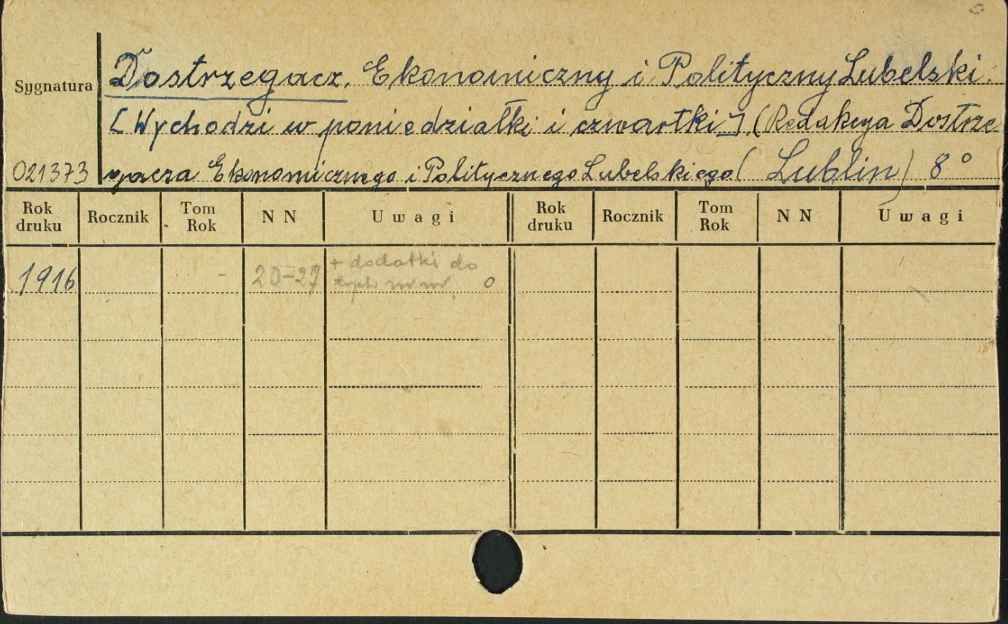 Sygnatura
Dostrzegacz, Ekonomiczny i Polityczny Lubelski.
[Wychodzi w poniedziałki i czwartki] (Redakcya Dostrze
021373 gacza Ekonomicznego i Politycznego Lubelskiego ( Lublin) 8°
Rok druku Rocznik Tom Rok NN Uwagi Rok druku Rocznik Tom Rok NN Uwagi
1916 - 20-27 + dodatki do
tych nrnr. o